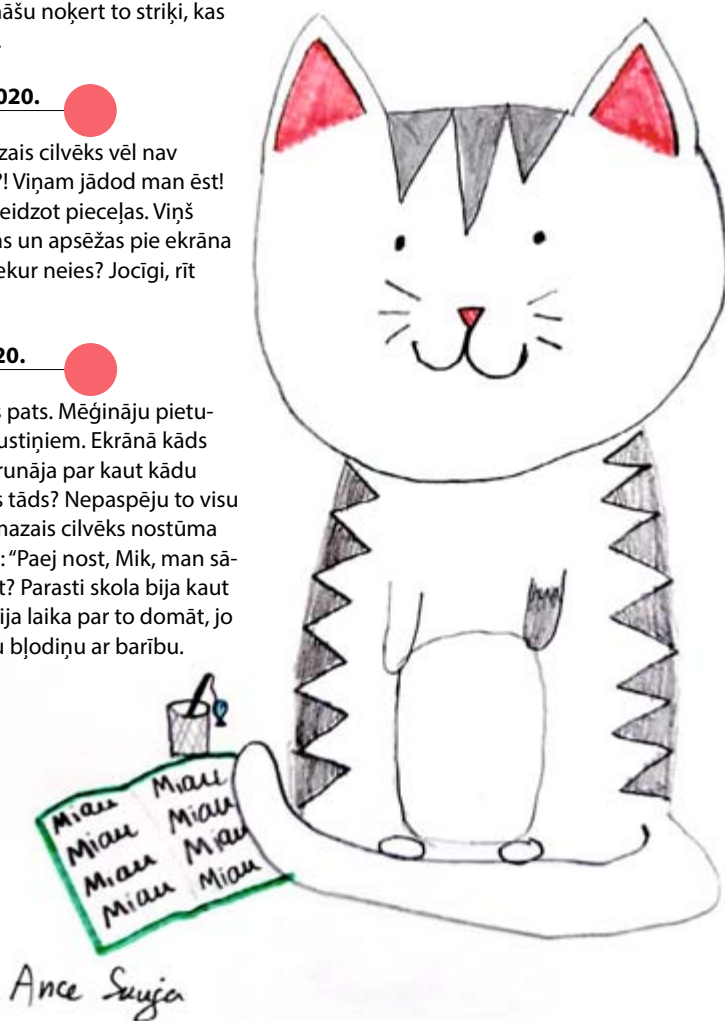 nāšu noķert to striķi, kas
.
020.
zais cilvēks vēl nav
?! Viņam jādod man ēst!
eidzot pieceļas. Viņš
as un apsēžas pie ekrāna
ekur neies? Jocīgi, rīt
20.
s pats. Mēģināju pietu-
ustiņiem. Ekrānā kāds
runāja par kaut kādu
s tāds? Nepaspēju to visu
mazais cilvēks nostūma
: “Paej nost, Mik, man sā-
t? Parasti skola bija kaut
ija laika par to domāt, jo
u bļodiņu ar barību.
Miau Miau
Miau Miau
Miau Miau
Miau Miau
Ance